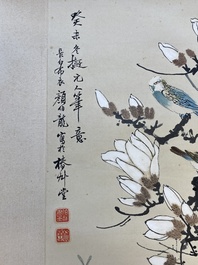 癸未冬擬元人筆意
長白布衣顏伯龍寫於椿艸堂